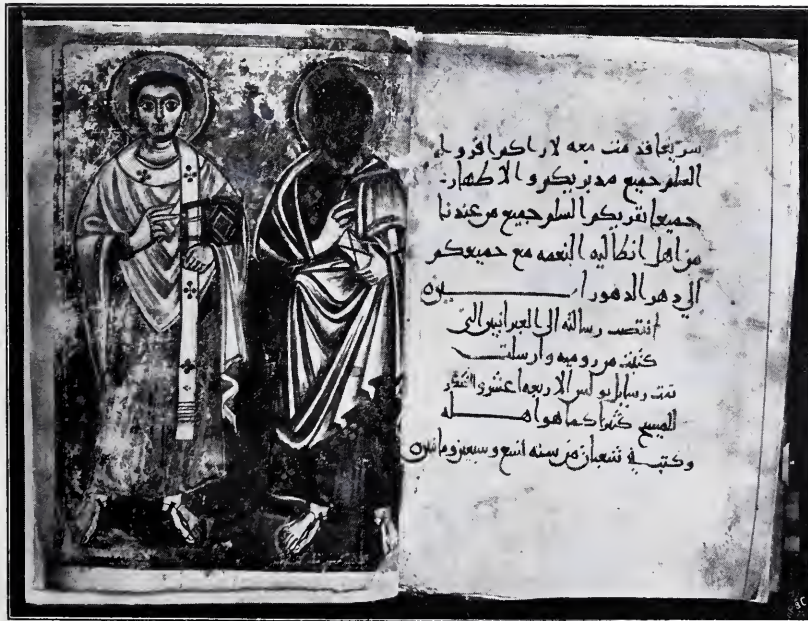 سريعا قدمت معه لاراكم اقروا
السلم جميع مدبريكم والاطهار
جميعا نقريكم السلم جميع من عندنا
من اهل انطاليه النعمه مع جميعكم
الى دهر الدهور امين
رسالته الى العبرانيين التي
كتبت من روميه وارسلت
تمت رسايل بولس الاربعه اعشر والشكر
للمسيح كثيرا كما هو اهله
وكتب في شعبان من سنه اتسع وسبعين ومايتين